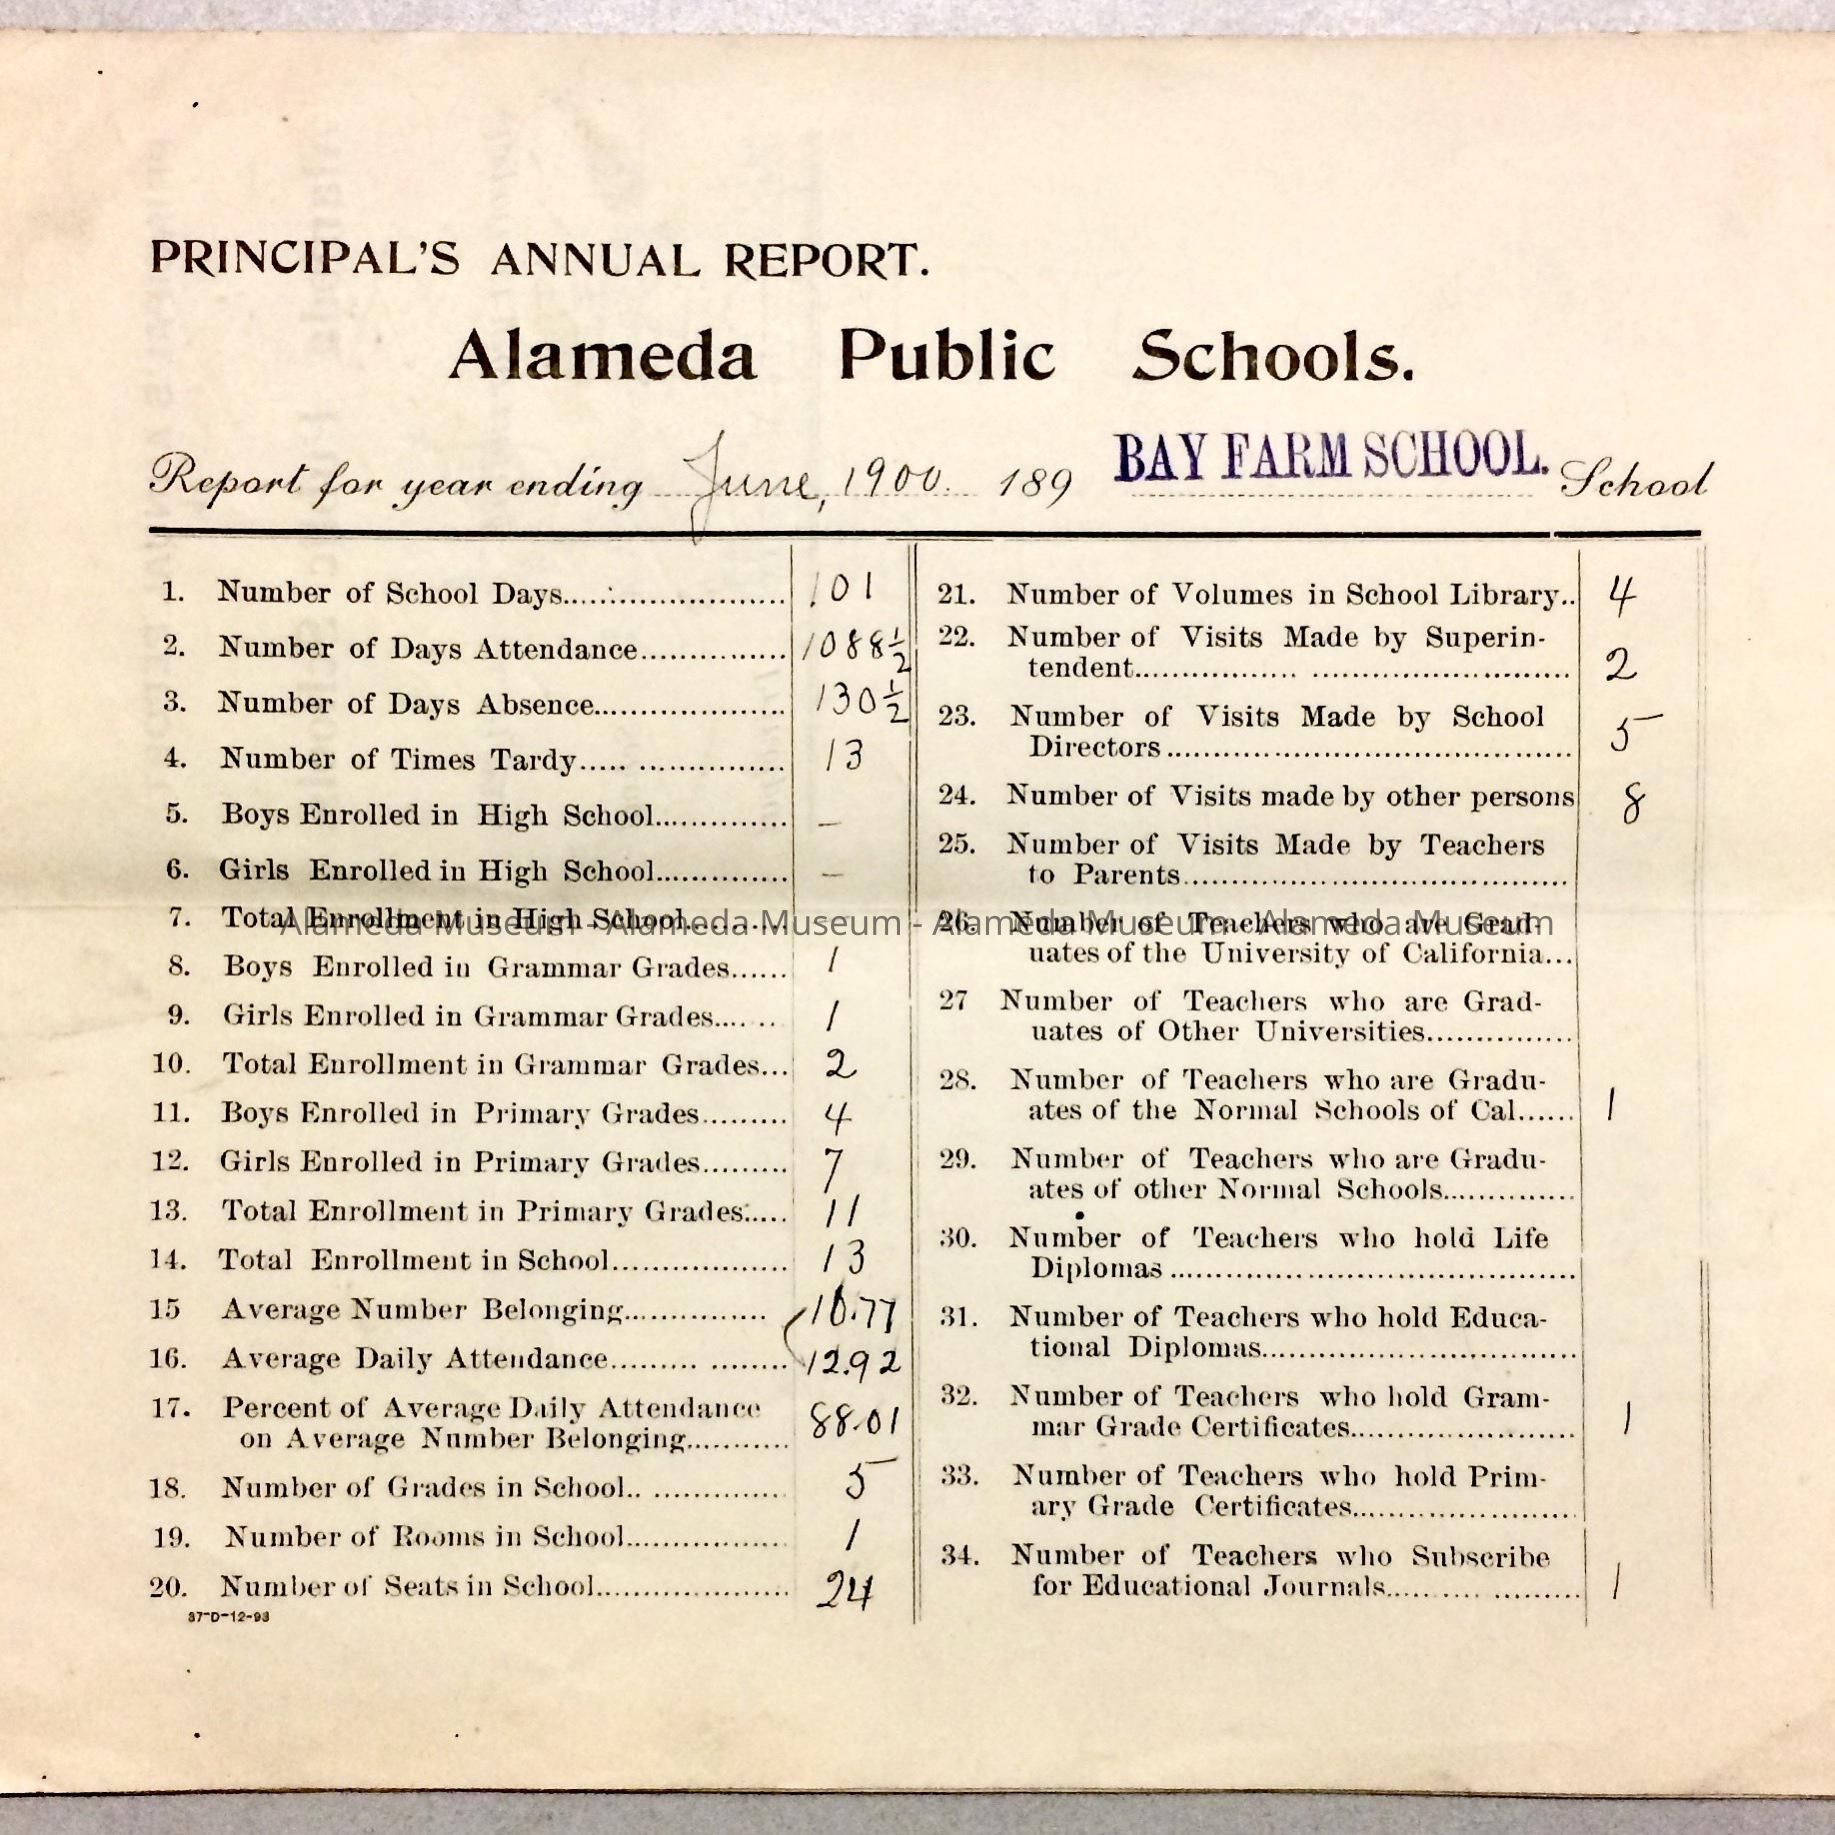 PRINCIPAL'S ANNUAL REPORT.
Alameda Public Schools.
Report for year ending June, 1900. 189 BAY FARM SCHOOL. School
1. Number of School Days 101
2. Number of Days Attendance 1088½
3. Number of Days Absence 130½
4. Number of Times Tardy 13
5. Boys Enrolled in High School —
6. Girls Enrolled in High School —
7. Total Enrollment in High School
8. Boys Enrolled in Grammar Grades 1
9. Girls Enrolled in Grammar Grades 1
10. Total Enrollment in Grammar Grades 2
11. Boys Enrolled in Primary Grades 4
12. Girls Enrolled in Primary Grades 7
13. Total Enrollment in Primary Grades 11
14. Total Enrollment in School 13
15 Average Number Belonging 10.77
16. Average Daily Attendance 12.92
17. Percent of Average Daily Attendance
on Average Number Belonging 88.01
18. Number of Grades in School 5
19. Number of Rooms in School 1
20. Number of Seats in School 24
37-D-12-93
21. Number of Volumes in School Library 4
22. Number of Visits Made by Superin-
tendent 2
23. Number of Visits Made by School
Directors 5
24. Number of Visits made by other persons 8
25. Number of Visits Made by Teachers
to Parents
26. Number of Teachers who are Grad-
uates of the University of California
27 Number of Teachers who are Grad-
uates of Other Universities
28. Number of Teachers who are Gradu-
ates of the Normal Schools of Cal. 1
29. Number of Teachers who are Gradu-
ates of other Normal Schools
30. Number of Teachers who hold Life
Diplomas
31. Number of Teachers who hold Educa-
tional Diplomas
32. Number of Teachers who hold Gram-
mar Grade Certificates 1
33. Number of Teachers who hold Prim-
ary Grade Certificates
34. Number of Teachers who Subscribe
for Educational Journals 1
Alameda Museum - Alameda Museum - Alameda Museum - Alameda Museum